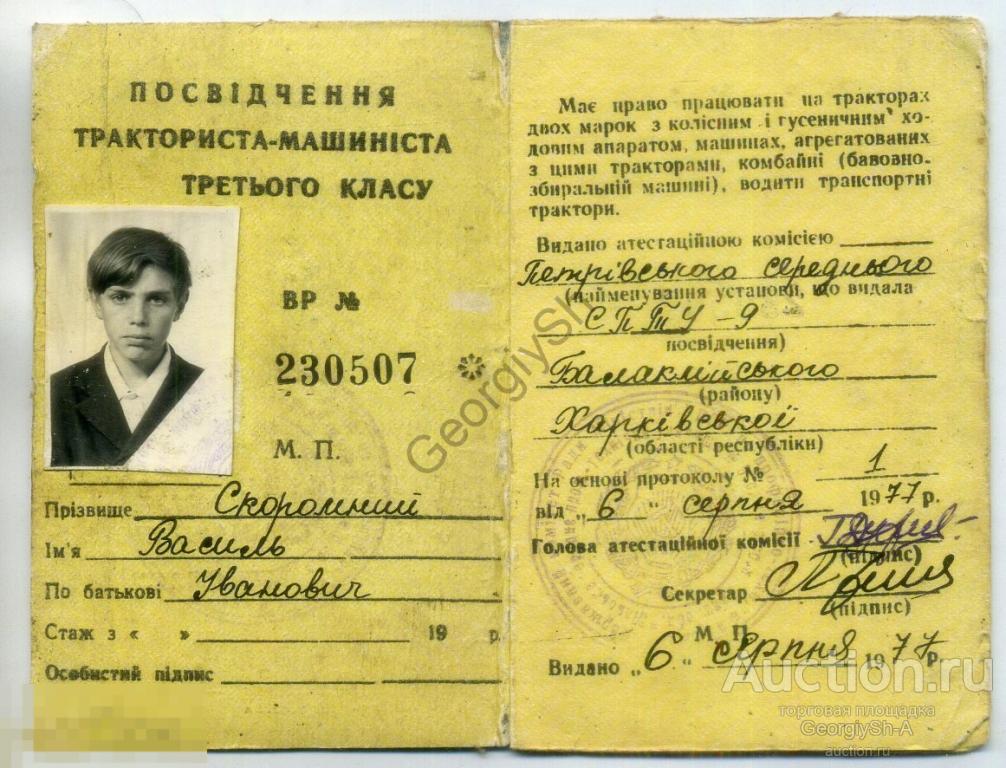 ПОСВІДЧЕННЯ
ТРАКТОРИСТА-МАШИНІСТА
ТРЕТЬОГО КЛАСУ
ВР №
230507
М. П.
Прізвище Скоромний
Ім'я Василь
По батькові Іванович
Стаж з « » 19 р.
Особистий підпис
Має право працювати на тракторах
двох марок з колісним і гусеничним хо-
довим апаратом, машинах, агрегатованих
з цими тракторами, комбайні (бавовно-
збиральній машині), водити транспортні
трактори.
Видано атестаційною комісією
Петрівського середнього
(найменування установи, що видала
СПТУ-9
посвідчення)
Балаклійського
(району)
Харківської
(області республіки)
На основі протоколу № 1
від „6" серпня 1977 р.
Голова атестаційної комісії
(підпис)
Секретар
(підпис)
М. П.
Видано „6" серпня 1977 р.
GeorgiySh
Auction.ru
торговая площадка
GeorgiySh-A
auction.ru